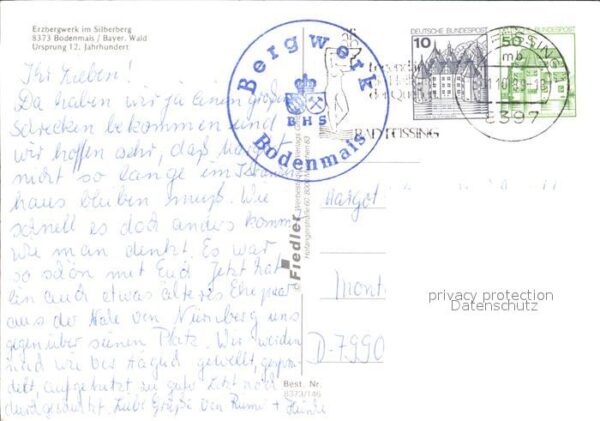 Erzbergwerk im Silberberg
8373 Bodenmais / Bayer. Wald
Ursprung 12. Jahrhundert
Ihr Lieben!
Da haben wir ja einen großen
Schrecken bekommen und
wir hoffen sehr, daß Margot
nicht so lange im Kranken
haus bleiben muß. Wie
schnell es doch anders kommt
wie man denkt. Es war
so schön mit Euch. Jetzt hat
ein auch etwas älteres Ehepaar
aus der Nähe von Nürnberg uns
gegenüber seinen Platz. Wir werden
und wie bei
durchgesucht. Liebe Grüße von +
Bergwerk
BHS
Bodenmais
DEUTSCHE BUNDESPOST
10
DEUTSCHE BUNDESPOST
50
mb
8397
BAD FÜSSING
© Fiedler
Margot
Mont
D-7990
privacy protection
Datenschutz
Best. Nr.
8373/146